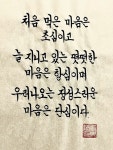 처음 먹은 마음은
초심이고
늘 지니고 있는 떳떳한
마음은 항심이며
우러나오는 정성스러운
마음은 단심이다